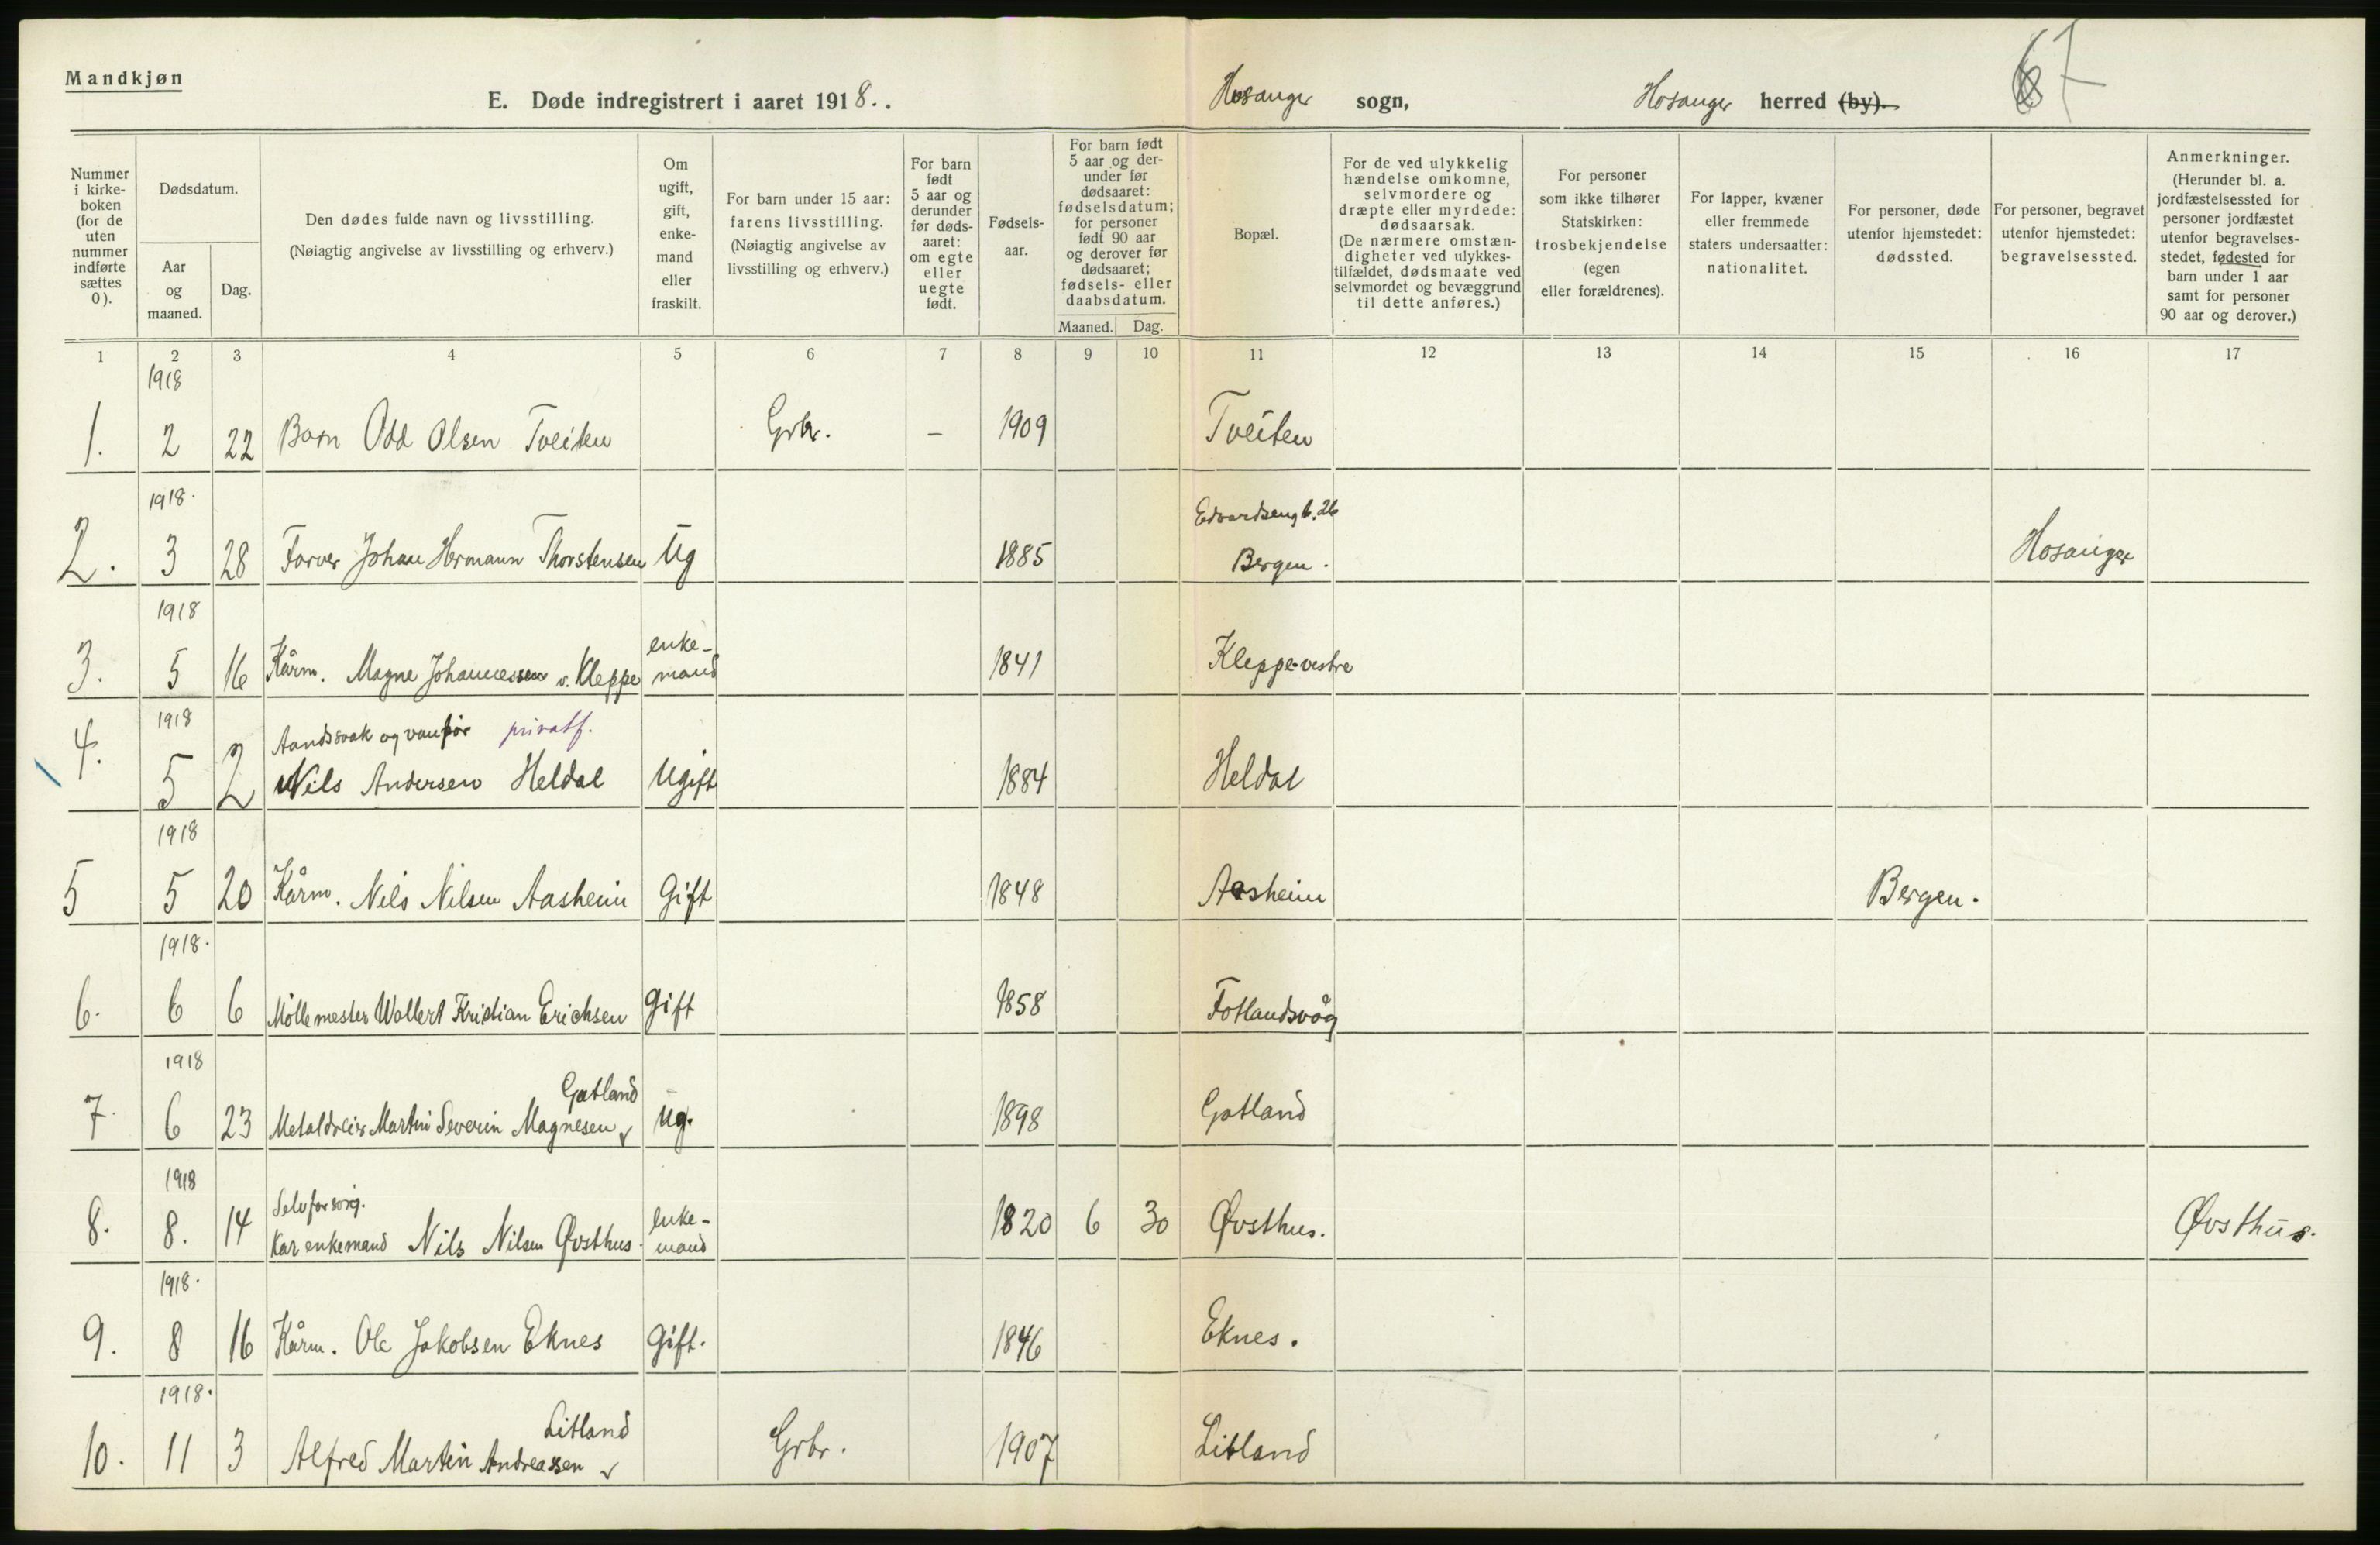 Mandkjøn
E. Døde indregistrert i aaret 1918. .
Hosanger sogn,
Hosanger herred (by).
67
Nummer
i kirke-
boken
(for de
uten
nummer
indførte
sættes
0).
Dødsdatum.
Aar
og
maaned.
Dag.
Den dødes fulde navn og livsstilling.
(Nøiagtig angivelse av livsstilling og erhverv.)
Om
ugift,
gift,
enke-
mand
eller
fraskilt.
For barn under 15 aar:
farens livsstilling.
(Nøiagtig angivelse av
livsstilling og erhverv.)
For barn
født
5 aar og
derunder
før døds-
aaret:
om egte
eller
uegte
født.
Fødsels-
aar.
For barn født
5 aar og der-
under før
dødsaaret:
fødselsdatum;
for personer
født 90 aar
og derover før
dødsaaret;
fødsels- eller
daabsdatum.
Maaned. Dag.
Bopæl.
For de ved ulykkelig
hændelse omkomne,
selvmordere og
dræpte eller myrdede:
dødsaarsak.
(De nærmere omstæn-
digheter ved ulykkes-
tilfældet, dødsmaate ved
selvmordet og bevæggrund
til dette anføres.)
For personer
som ikke tilhører
Statskirken:
trosbekjendelse
(egen
eller forældrenes).
For lapper, kvæner
eller fremmede
staters undersaatter:
nationalitet.
For personer, døde
utenfor hjemstedet:
dødssted.
For personer, begravet
utenfor hjemstedet:
begravelsessted.
Anmerkninger.
(Herunder bl. a.
jordfæstelsessted for
personer jordfæstet
utenfor begravelses-
stedet, fødested for
barn under 1 aar
samt for personer
90 aar og derover.)
1 2 3 4 5 6 7 8 9 10 11 12 13 14 15 16 17
1918
1. 2 22 Barn Odd Olsen Tveiten Grbr. - 1909 Tveiten
1918. Edvardseng b. 26
2. 3 28 Farver Johan Hermann Thorstensen Ug 1885 Bergen. Hosanger
1918 enke-
3. 5 16 Kårm. Magne Johannessen v. Kleppe mand 1841 Kleppe vestre
1918 Aandssvak og vanfør privatf.
4. 5 2 Nils Andersen Heldal Ugift 1884 Heldal
1918
5 5 20 Kårm. Nils Nilsen Aasheim Gift 1848 Aasheim Bergen.
1918.
6. 6 6 Möllemester Wollert Kristian Erichsen gift 1858 Fotlandsvåg
1918 Gatland
7. 6 23 Metaldreier Martin Severin Magnesen v Ug. 1898 Gatland
1918 Selvforsörg. enke-
8. 8. 14 Kar enkemand Nils Nilsen Øvsthus. mand 1820 6 30 Øvsthus. Øvsthus.
1918.
9. 8 16 Kårm. Ole Jakobsen Eknes gift. 1846 Eknes.
1918. Litland
10. 11 3 Alfred Martin Andreassen v Grbr. 1907 Litland